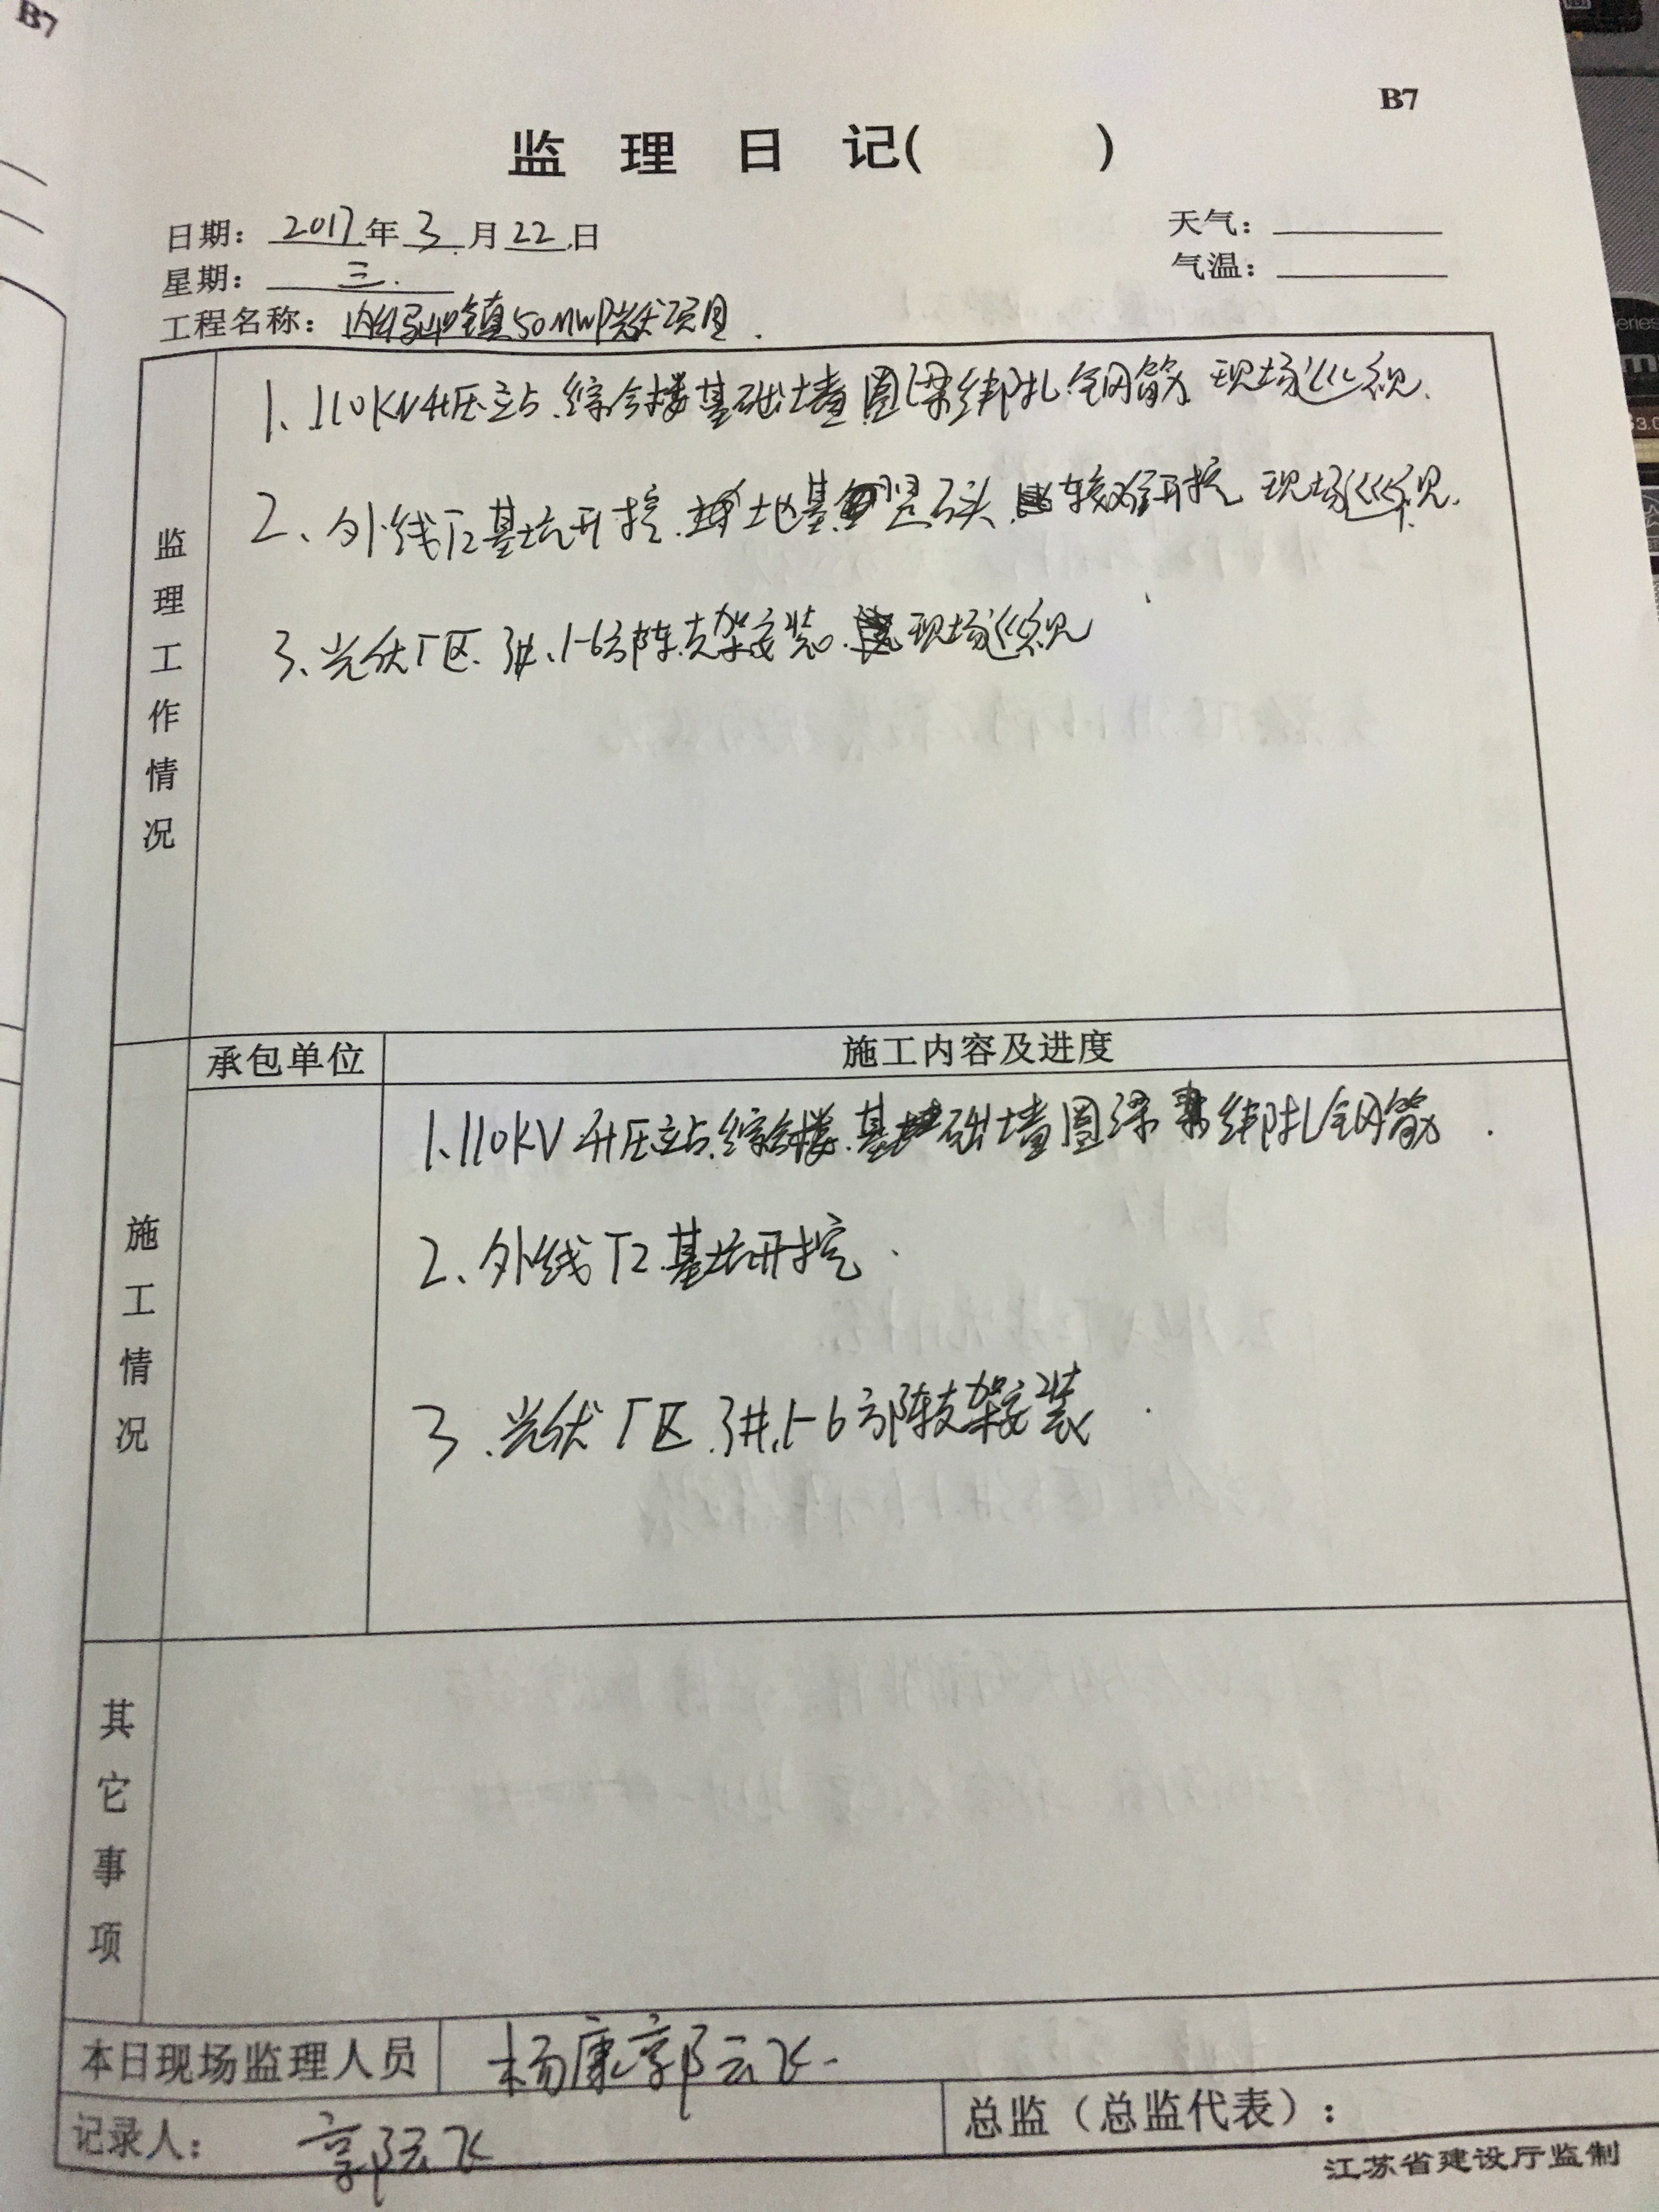 B7
B7
监 理 日 记( )
日期: 2017 年 3 月 22 日
天气:
星期: 三.
气温:
工程名称: 镇50MWP光伏项目.
监理工作情况
1、110KV升压站.综合楼基础墙圈梁绑扎钢筋 现场巡视.
2、外线T2基坑开挖. 地基 石头. 较难开挖 现场巡视.
3、光伏厂区.3#.1-6方阵.支架安装. 现场巡视
承包单位
施工内容及进度
施工情况
1.110KV升压站.综合楼.基础墙圈梁绑扎钢筋.
2、外线T2基坑开挖.
3.光伏厂区.3#.1-6方阵支架安装.
其它事项
本日现场监理人员
杨康 郭云飞.
记录人: 郭云飞
总监(总监代表):
江苏省建设厅监制